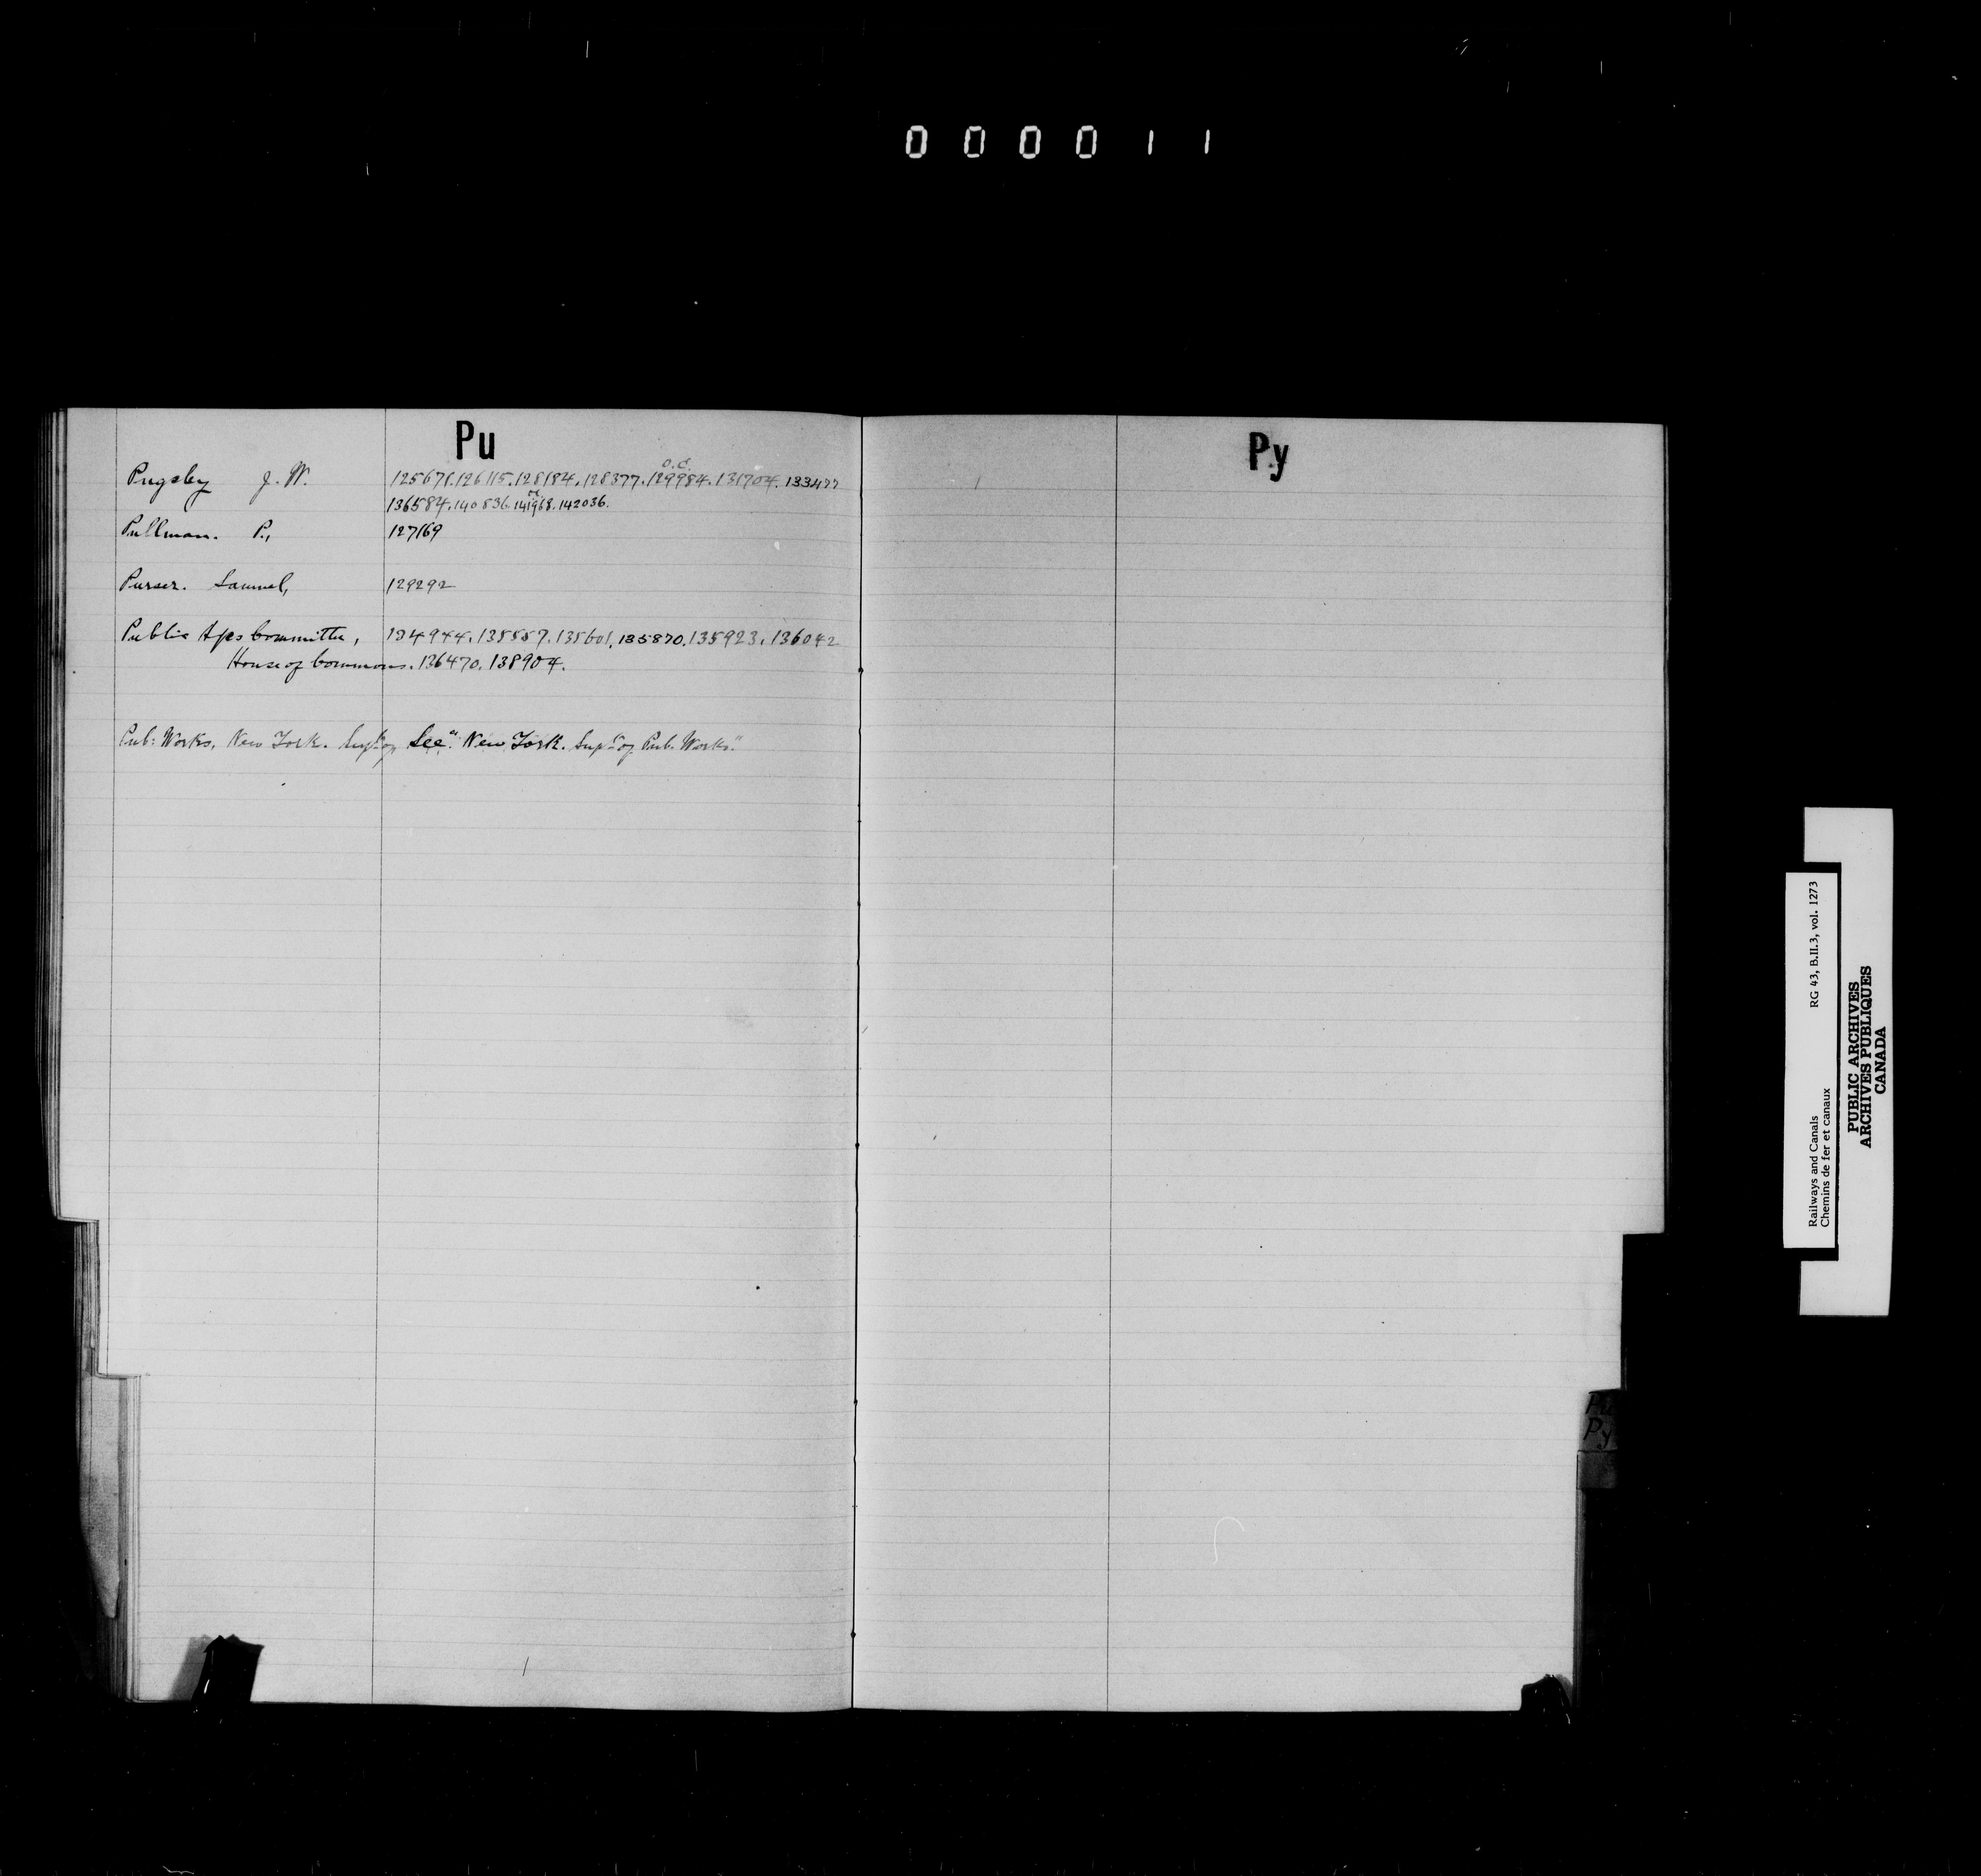 000011
Pu
Pugsley J. W. 125671. 126115. 128184. 128377. O.C. 129984. 131704. 133477
136584. 140836. 141968. 142036.
Pullman. P., 127169
Purser. Samuel, 129292
Public Committee, 134944. 135557. 135601. 135870. 135923. 136042
House of Commons. 136470. 138904.
Pub: Works, New York. Supt of See "New York. Supt of Pub. Works"
Py
Pu
Py
Railways and Canals RG 43, B.II.3, vol. 1273
Chemins de fer et canaux
PUBLIC ARCHIVES
ARCHIVES PUBLIQUES
CANADA